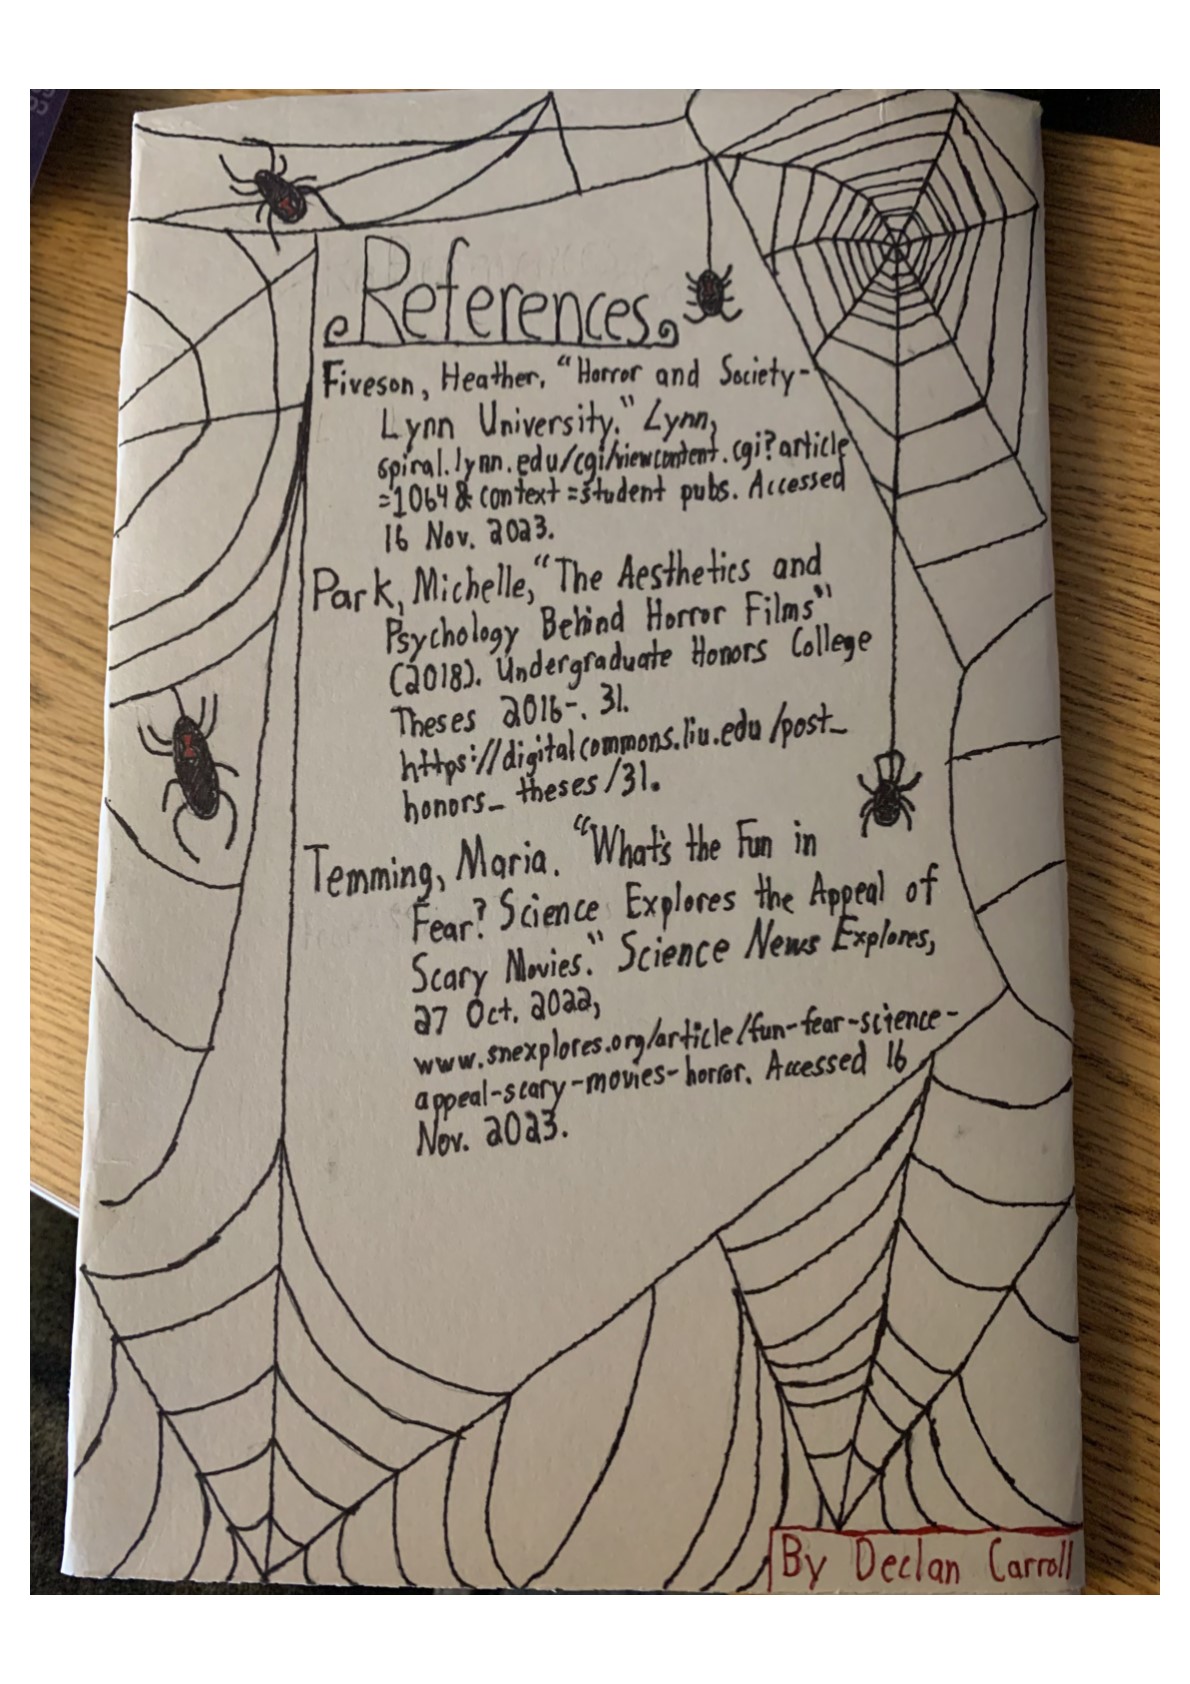 References
Fiveson, Heather. "Horror and Society-
Lynn University." Lynn,
spiral.lynn.edu/cgi/viewcontent.cgi?article
=1064&context=student pubs. Accessed
16 Nov. 2023.
Park, Michelle, "The Aesthetics and
Psychology Behind Horror Films"
(2018). Undergraduate Honors College
Theses 2016-. 31.
https://digitalcommons.liu.edu/post_
honors_theses/31.
Temming, Maria. "What's the Fun in
Fear? Science Explores the Appeal of
Scary Movies." Science News Explores,
27 Oct. 2022,
www.snexplores.org/article/fun-fear-science-
appeal-scary-movies-horror. Accessed 16
Nov. 2023.
By Declan Carroll